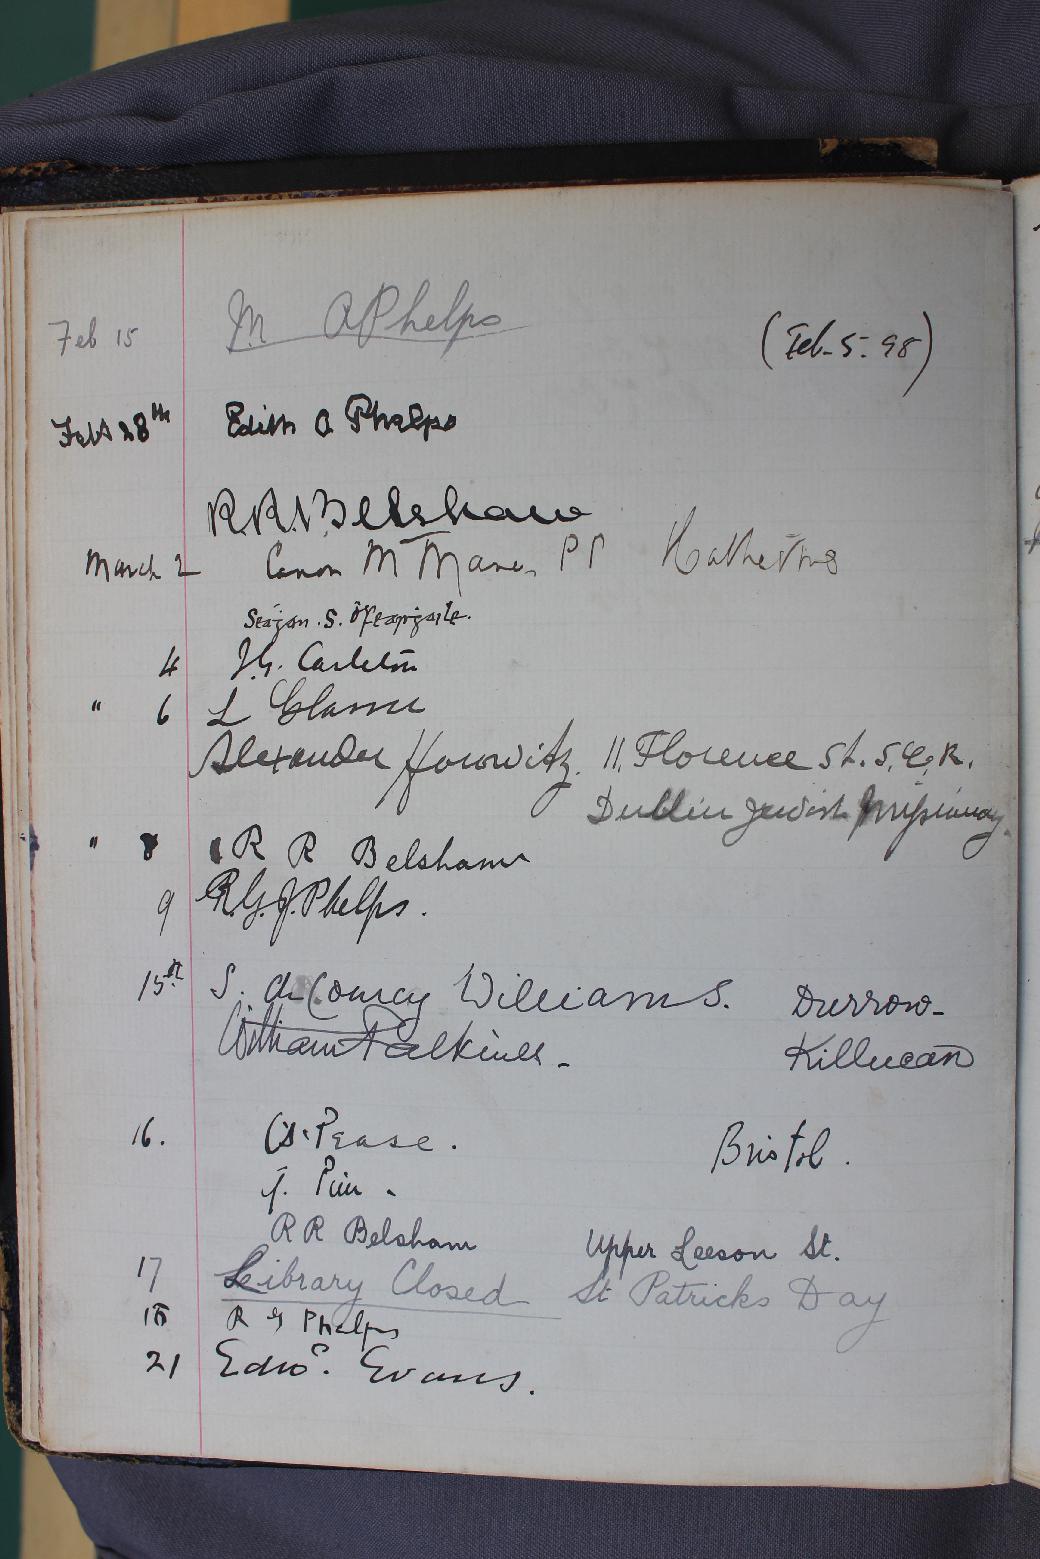 Feb 15 M A Phelps
(Feb. 5. 98)
Feb 28th Edith A Phelps
R.R. Belshaw
March 2 Canon M PP
Seaġan. S.
4 J.G. Carleton
" 6 L
Alexander Horowitz. 11. Florence St. S.C.R.
Dublin Jewish Missionary.
" 8 R R Belsham
9 R.G.J. Phelps.
15th S. de Courcy Williams. Durrow-
William Falkiner. Killucan
16. Pease. Bristol.
J. Pim.
R R Belsham Upper Leeson St.
17 Library Closed St Patricks Day
18 R G Phelps
21 Edwd. Evans.